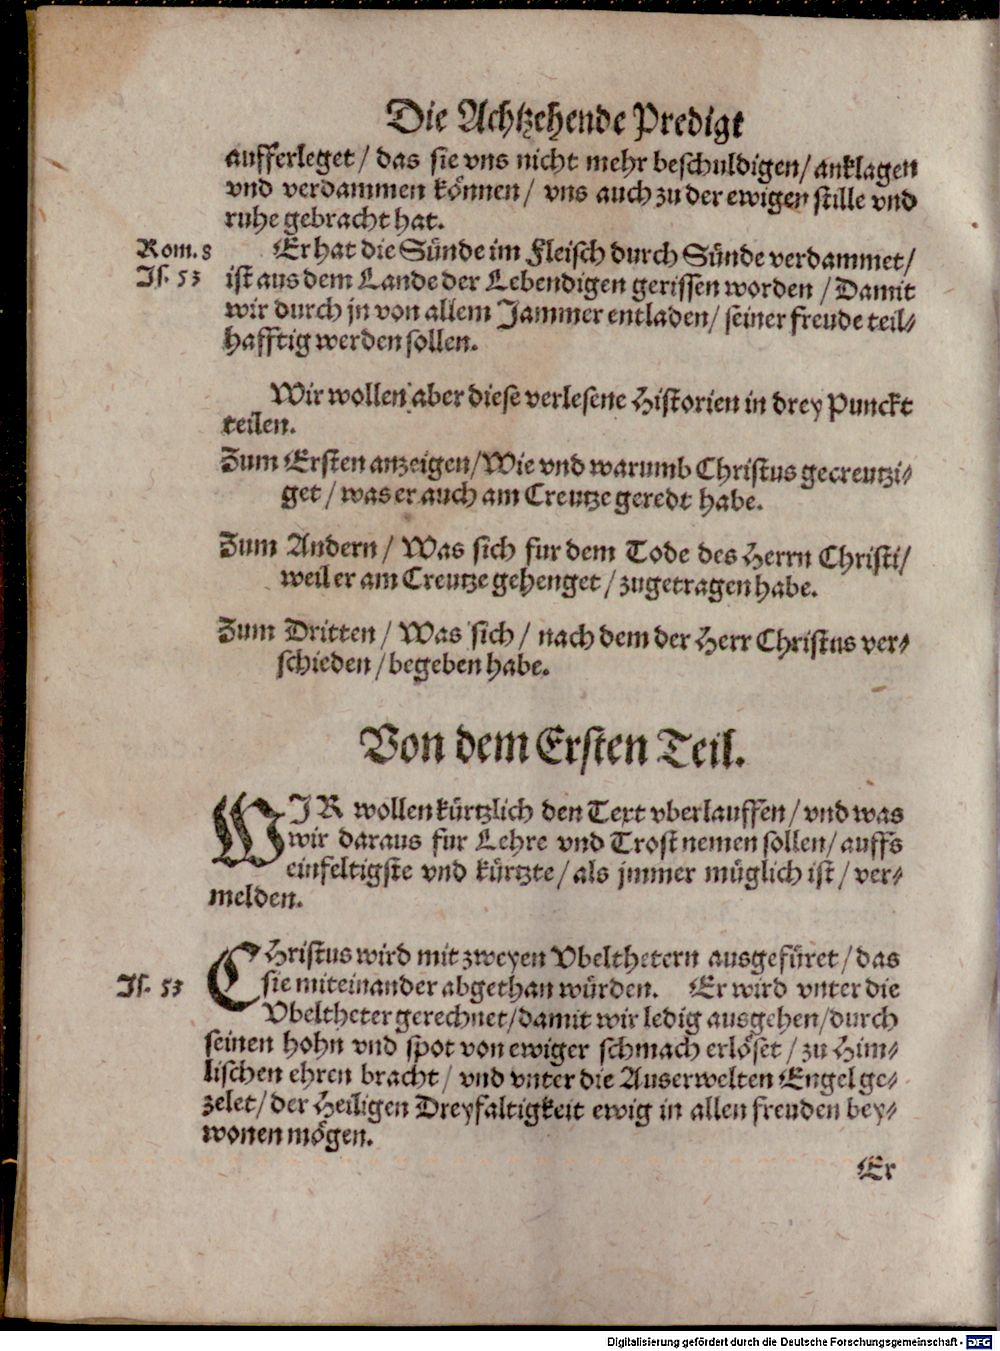 Die Achtzehende Predigt
aufferleget / das sie vns nicht mehr beschuldigen / anklagen
vnd verdammen können / vns auch zu der ewigen stille vnd
ruhe gebracht hat.
Rom. 8 Er hat die Sünde im Fleisch durch Sünde verdammet /
Js. 53 ist aus dem Lande der Lebendigen gerissen worden / Damit
wir durch jn von allem Jammer entladen / seiner freude teil-
hafftig werden sollen.
Wir wollen aber diese verlesene Historien in drey Punckt
teilen.
Zum Ersten anzeigen / Wie vnd warumb Christus gecreutzi-
get / was er auch am Creutze geredt habe.
Zum Andern / Was sich fur dem Tode des Herrn Christi /
weil er am Creutze gehenget / zugetragen habe.
Zum Dritten / Was sich / nach dem der Herr Christus ver-
schieden / begeben habe.
Von dem Ersten Teil.
WJR wollen kürtzlich den Text vberlauffen / vnd was
wir daraus fur Lehre vnd Trost nemen sollen / auffs
einfeltigste vnd kürtzte / als jmmer müglich ist / ver-
melden.
CHristus wird mit zweyen Vbelthetern ausgefüret / das
Js. 53 sie miteinander abgethan würden. Er wird vnter die
Vbeltheter gerechnet / damit wir ledig ausgehen / durch
seinen hohn vnd spot von ewiger schmach erlöset / zu Him-
lischen ehren bracht / vnd vnter die Auserwelten Engel ge-
zelet / der Heiligen Dreyfaltigkeit ewig in allen freuden bey-
wonen mögen.
Er
Digitalisierung gefördert durch die Deutsche Forschungsgemeinschaft - DFG